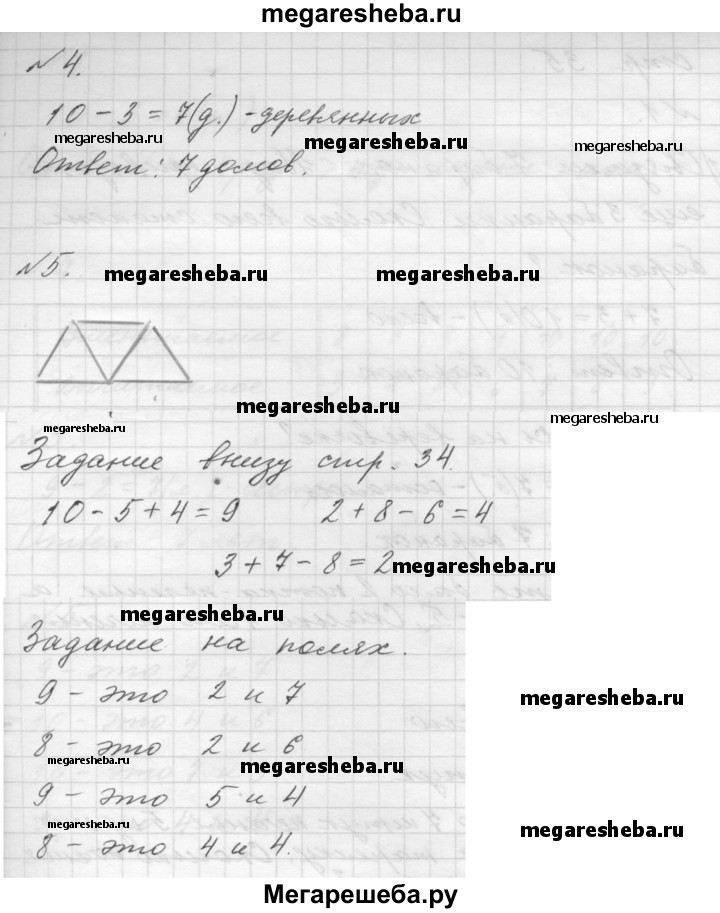 megaresheba.ru
№4.
10 - 3 = 7(д.) - деревянных
megaresheba.ru megaresheba.ru megaresheba.ru
Ответ: 7 домов.
№5.
megaresheba.ru megaresheba.ru
megaresheba.ru
megaresheba.ru megaresheba.ru
Задание внизу стр. 34.
10 - 5 + 4 = 9 2 + 8 - 6 = 4
3 + 7 - 8 = 2
megaresheba.ru
megaresheba.ru
Задание на полях.
9 - это 2 и 7
megaresheba.ru
8 - это 2 и 6
megaresheba.ru megaresheba.ru
9 - это 5 и 4
megaresheba.ru megaresheba.ru
8 - это 4 и 4.
Мегарешеба.ру